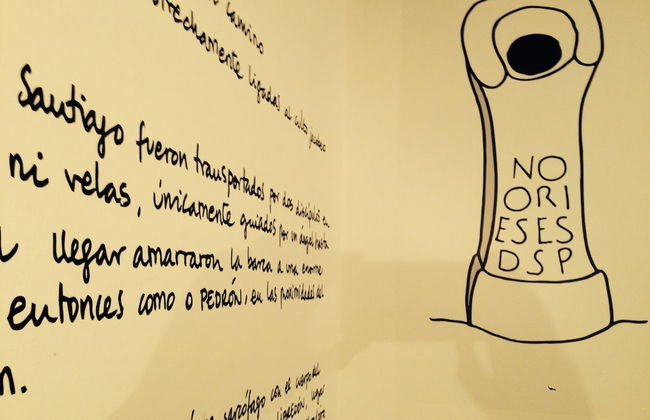 camino
estrechamente ligadas al culto
Santiago fueron transportados por dos discípulos en
ni velas, únicamente guiados por un ángel hasta
llegar amarraron la barca a una enorme
entonces como o PEDRÓN, en las proximidades del
n.
sarcófago con el cuerpo del
NO
ORI
ESES
DSP